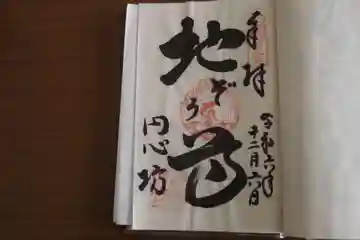 奉拝
地ぞう尊
令和六年
十二月六日
円心坊